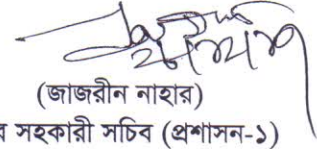 (জাজরীন নাহার)
সহকারী সচিব (প্রশাসন-১)